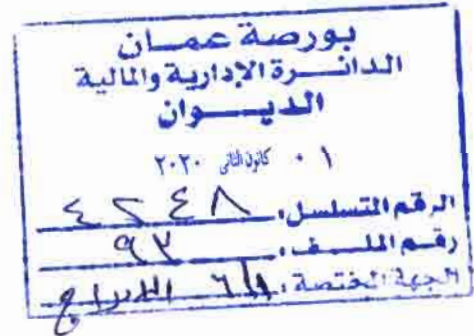 بورصة عمان
الدائرة الإدارية والمالية
الديوان
٠١ كانون الثاني ٢٠٢٠
الرقم المتسلسل:
رقم الملف:
الجهة المختصة: الادراج